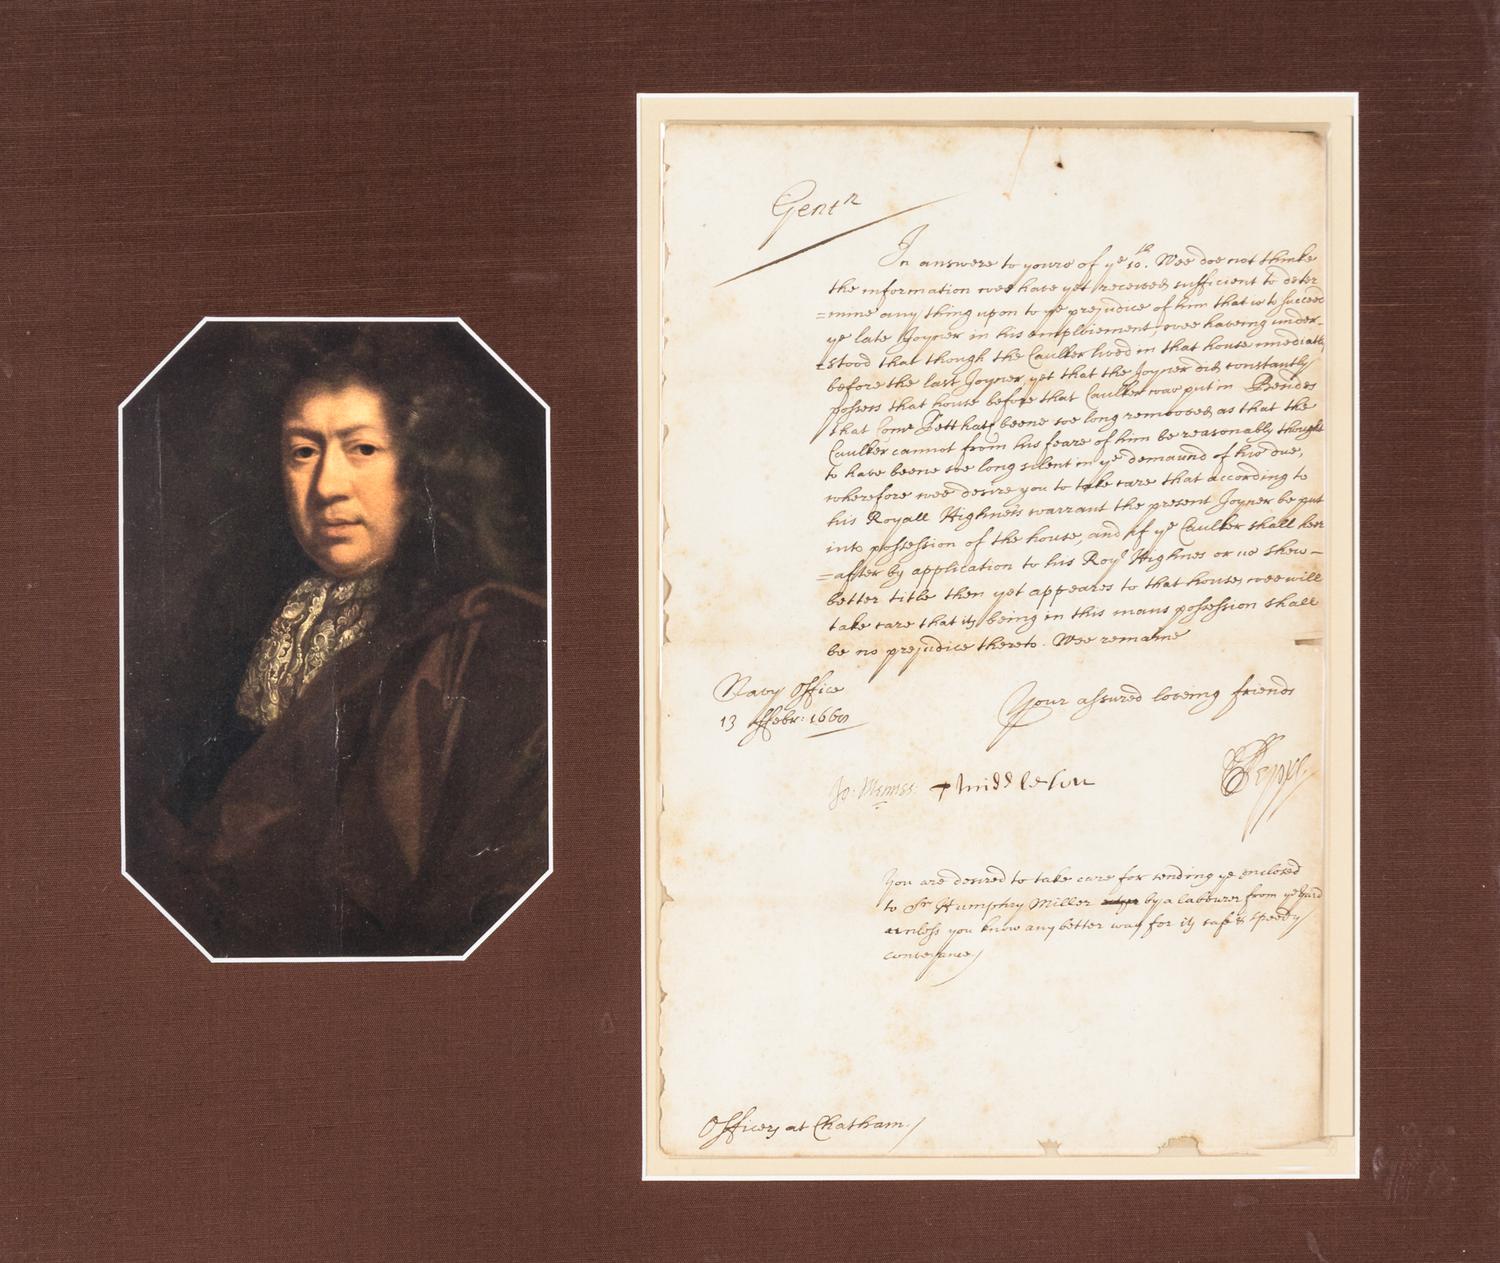 Gentn
In answere to yours of ye 10th. Wee doe not thinke
the information wee have yet received sufficient to deter
=mine any thing upon to ye prejudice of him that is to succeed
ye late Joyner in his emploiement, wee haveing under-
=stood that though the Caulker lived in that house imediatly
before the last Joyner, yet that the Joyner did constantly
possess that house before that Caulker was put in Besides
that Comr Pett hath beene soe long remooved as that the
Caulker cannot from his feare of him be reasonably thought
to have beene soe long silent in ye demaund of his due,
wherefore wee desire you to take care that according to
his Royall Highness warrant the present Joyner be put
into possession of the house, and if ye Caulker shall here
=after by application to his Royl Highnes or us shew-
better title then yet appeares to that house, wee will
take care that its being in this mans possession shall
be no prejudice thereto. Wee remaine
Navy Office
13 ffebr: 166
Your assured loveing friends
Jo. Mennes Middleton SPepys
You are desired to take care for sending ye enclosed
to Sr Humphry Miller by a labourer from ye yard
unless you know any better way for its safe & speedy
conveyance
Officers at Chatham